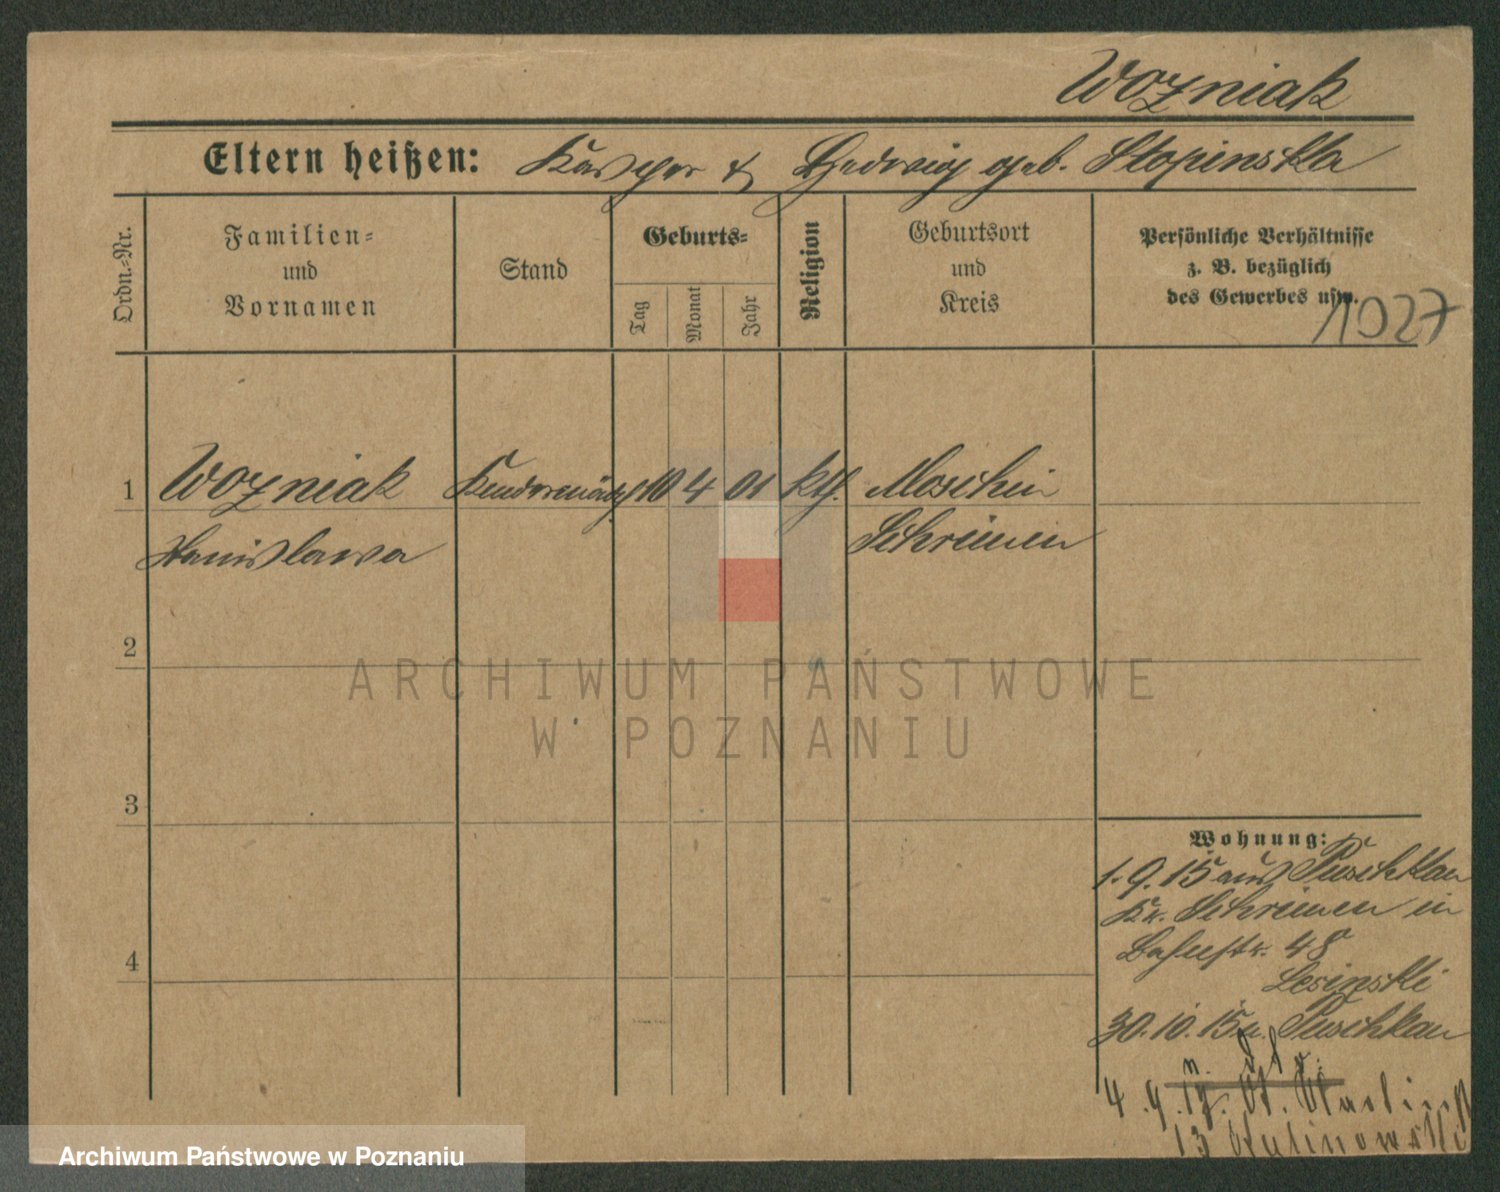 Wozniak
Eltern heißen: Kasper & Hedwig geb. Stopinska
Ordn.-Nr.
Familien-
und
Vornamen
Stand
Geburts-
Tag
Monat
Jahr
Religion
Geburtsort
und
Kreis
Persönliche Verhältnisse
z. B. bezüglich
des Gewerbes usw.
1027
1 Wozniak 10 4 01 kth. Moschin
Stanislawa Schrimm
2
3
4
Wohnung:
1.9.15 aus Puschkau
Kr. Schrimm in
Bahnstr. 48
Lesinski
30.10.15 n. Puschkau
4.9.17. St.
13 Kalinowski
ARCHIWUM PAŃSTWOWE
W POZNANIU
Archiwum Państwowe w Poznaniu